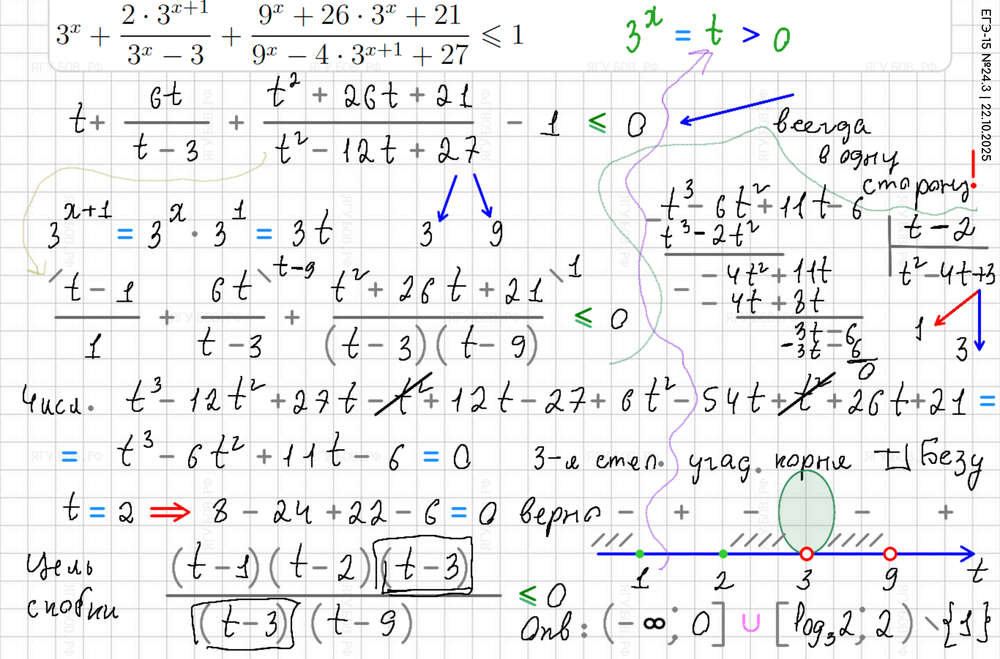 3^x + (2 · 3^{x+1})/(3^x − 3) + (9^x + 26 · 3^x + 21)/(9^x − 4 · 3^{x+1} + 27) ⩽ 1
3^x = t > 0
ЕГЭ-15 №24.3 | 22.10.2025
t + 6t/(t − 3) + (t² + 26t + 21)/(t² − 12t + 27) − 1 ≤ 0
всегда
в одну
сторону!
3^{x+1} = 3^x · 3^1 = 3t
3 9
t³ − 6t² + 11t − 6
t − 2
t³ − 2t²
t² − 4t + 3
− 4t² + 11t
− 4t + 8t
1
3
3t − 6
3t − 6
0
(t − 1)/1 + 6t/(t − 3) + (t² + 26t + 21)/((t − 3)(t − 9)) ≤ 0
t − 9
1
Числ. t³ − 12t² + 27t − t² + 12t − 27 + 6t² − 54t + t² + 26t + 21 =
= t³ − 6t² + 11t − 6 = 0 3-я степ. угад. корня Безу
t = 2 ⇒ 8 − 24 + 22 − 6 = 0 верно
− + − − +
Цель
скобки
((t − 1)(t − 2)(t − 3))/((t − 3)(t − 9)) ≤ 0
1 2 3 9 t
Отв: (−∞; 0] ∪ [log₃2; 2) \ {1}